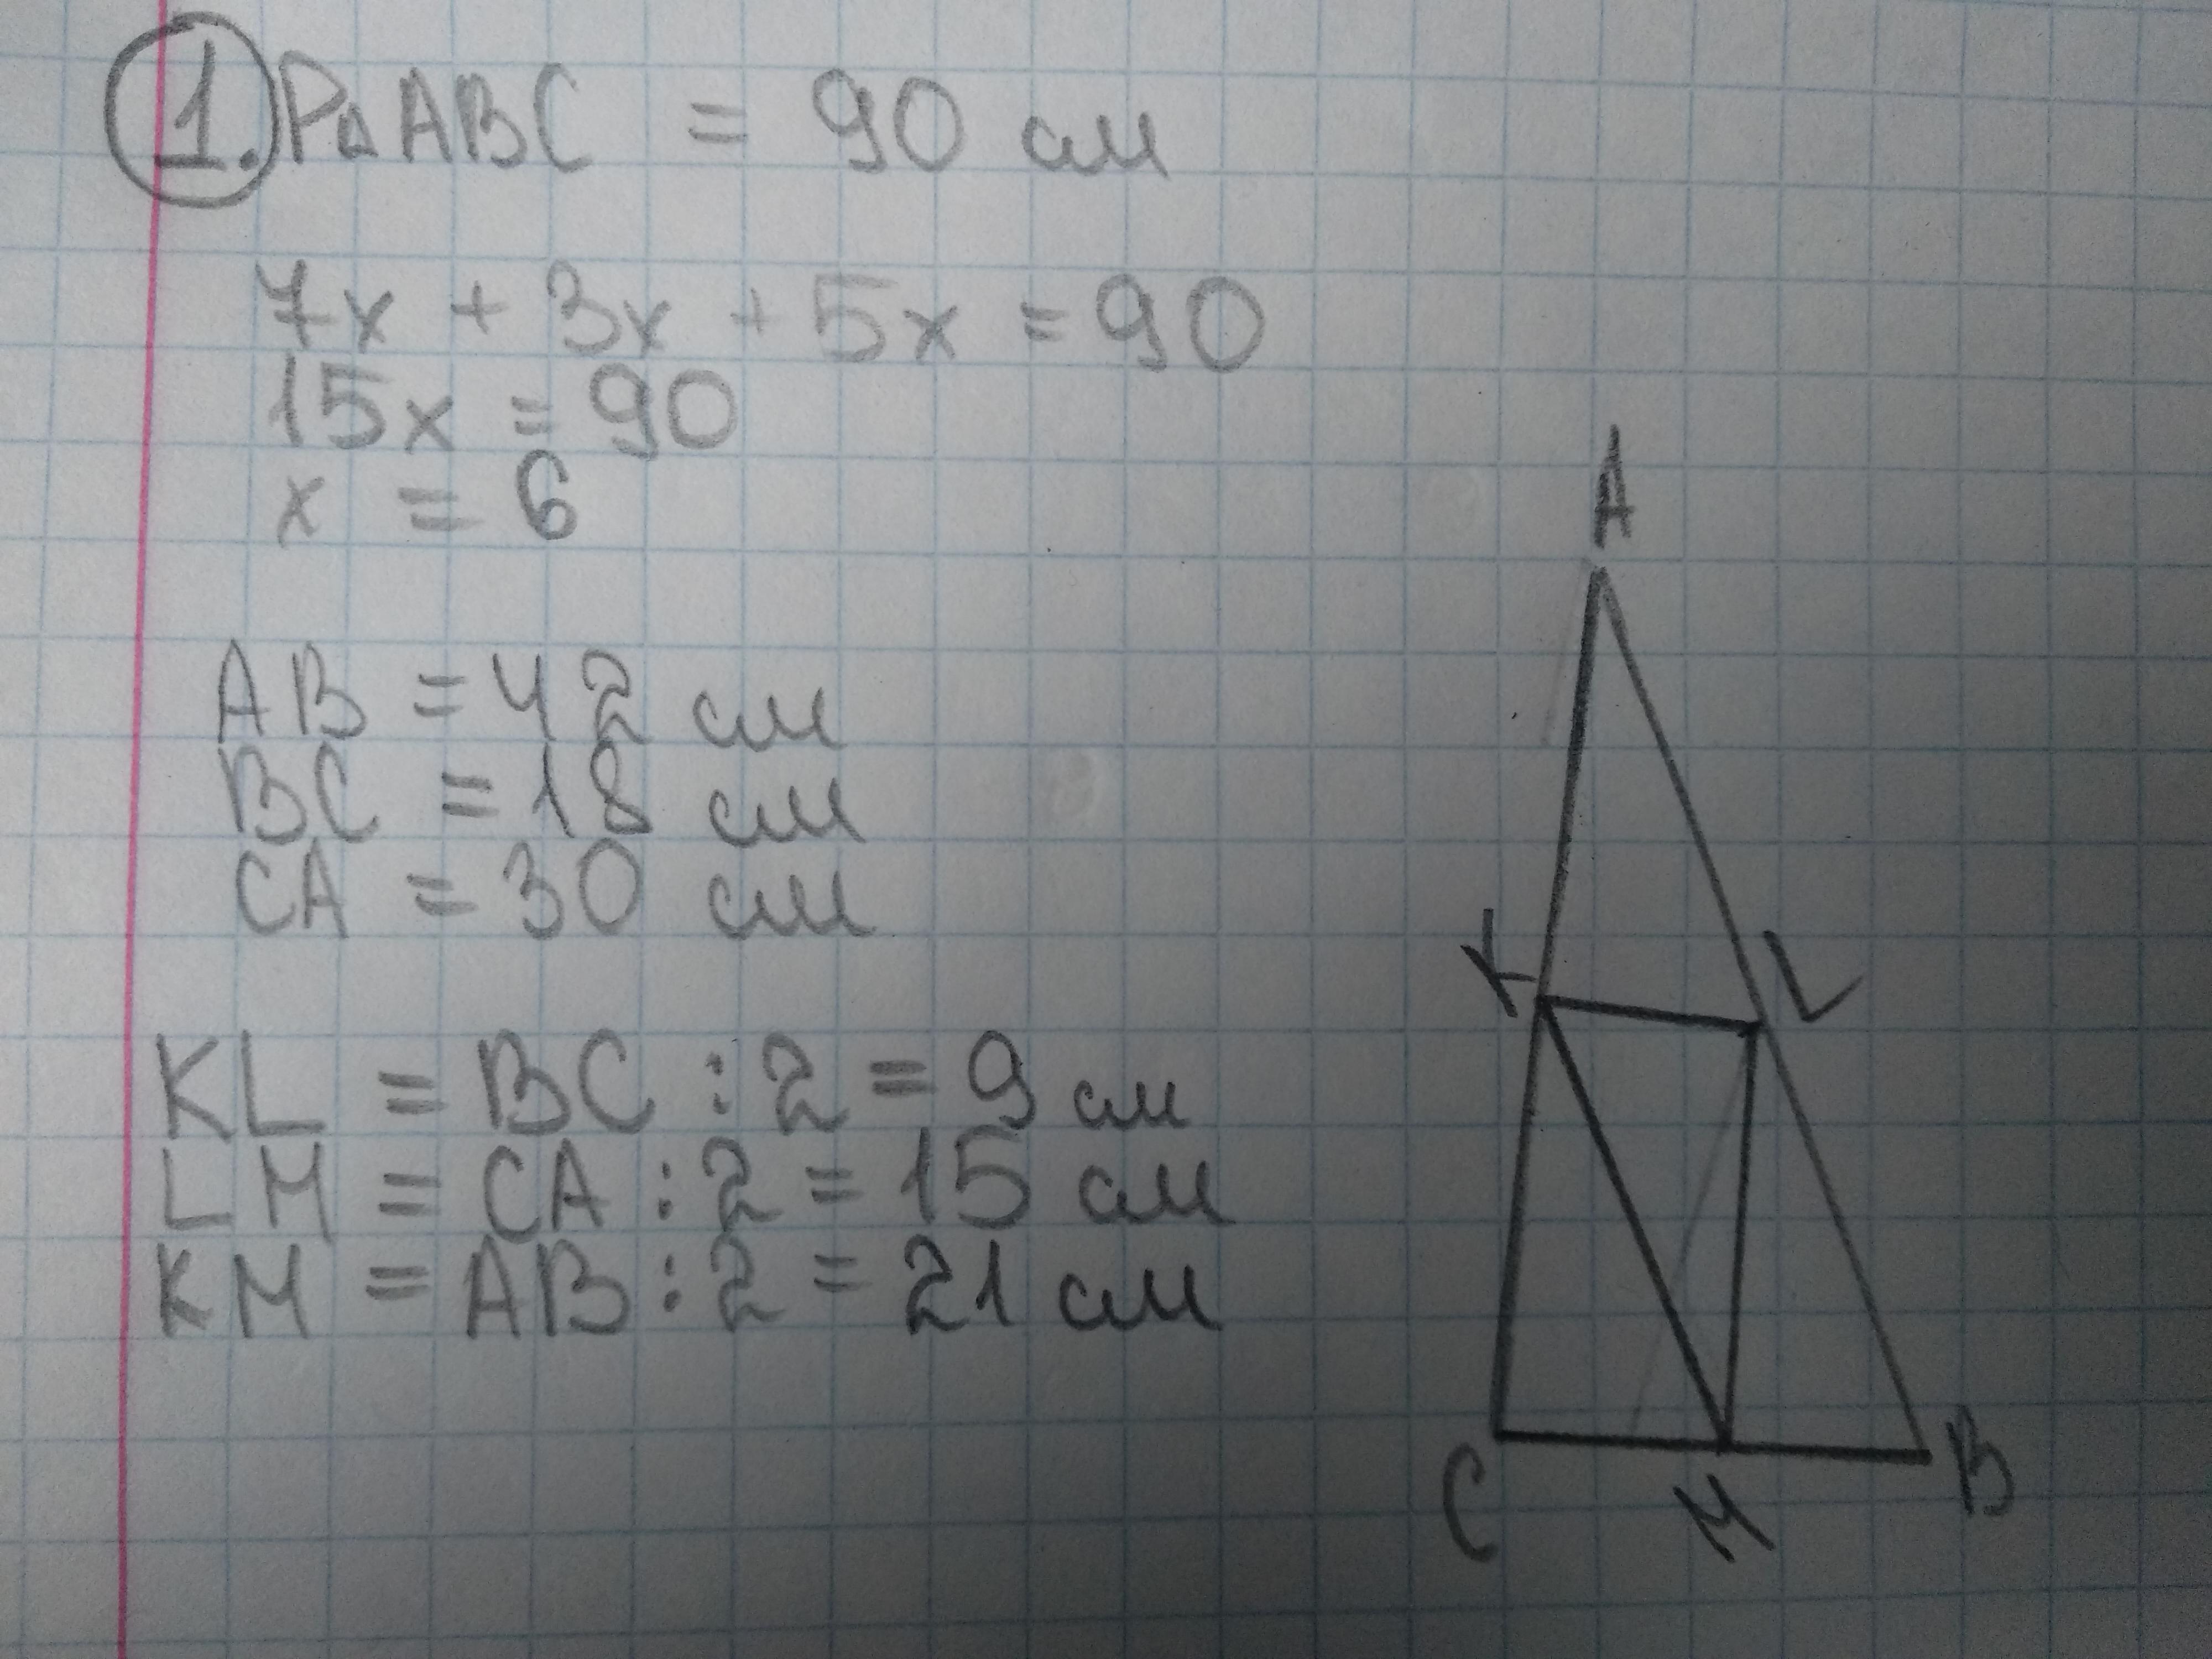 1. P△ABC = 90 см
7x + 3x + 5x = 90
15x = 90
x = 6
AB = 42 см
BC = 18 см
CA = 30 см
KL = BC : 2 = 9 см
LM = CA : 2 = 15 см
KM = AB : 2 = 21 см
A
K
L
C
M
B